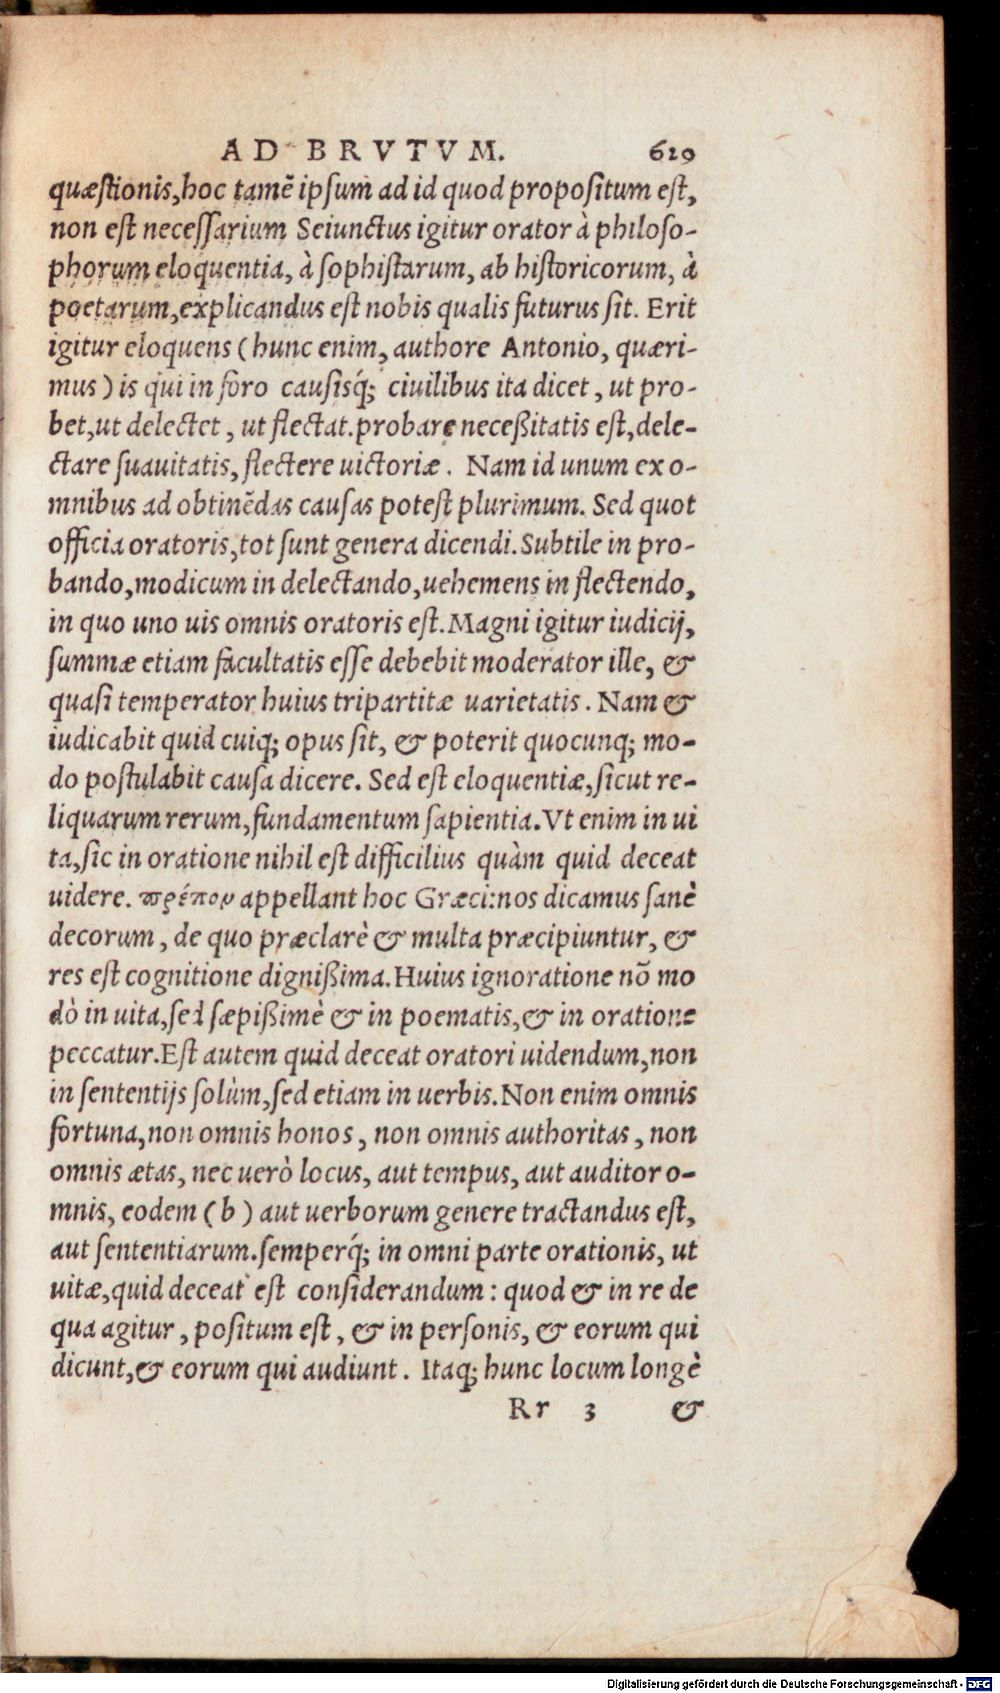 AD BRVTVM. 629
quæstionis, hoc tamẽ ipsum ad id quod propositum est,
non est necessarium Seiunctus igitur orator à philoso-
phorum eloquentia, à sophistarum, ab historicorum, à
poetarum, explicandus est nobis qualis futurus sit. Erit
igitur eloquens (hunc enim, authore Antonio, quæri-
mus) is qui in foro causisq́; ciuilibus ita dicet, ut pro-
bet, ut delectet, ut flectat. probare neceßitatis est, dele-
ctare suauitatis, flectere uictoriæ. Nam id unum ex o-
mnibus ad obtinẽdas causas potest plurimum. Sed quot
officia oratoris, tot sunt genera dicendi. Subtile in pro-
bando, modicum in delectando, uehemens in flectendo,
in quo uno uis omnis oratoris est. Magni igitur iudicij,
summæ etiam facultatis esse debebit moderator ille, &
quasi temperator huius tripartitæ uarietatis. Nam &
iudicabit quid cuiq; opus sit, & poterit quocunq; mo-
do postulabit causa dicere. Sed est eloquentiæ, sicut re-
liquarum rerum, fundamentum sapientia. Vt enim in ui
ta, sic in oratione nihil est difficilius quàm quid deceat
uidere. πρέπον appellant hoc Græci: nos dicamus sanè
decorum, de quo præclarè & multa præcipiuntur, &
res est cognitione dignißima. Huius ignoratione nõ mo
dò in uita, sed sæpißimè & in poematis, & in oratione
peccatur. Est autem quid deceat oratori uidendum, non
in sententijs solùm, sed etiam in uerbis. Non enim omnis
fortuna, non omnis honos, non omnis authoritas, non
omnis ætas, nec uerò locus, aut tempus, aut auditor o-
mnis, eodem (b) aut uerborum genere tractandus est,
aut sententiarum. semperq́; in omni parte orationis, ut
uitæ, quid deceat est considerandum: quod & in re de
qua agitur, positum est, & in personis, & eorum qui
dicunt, & eorum qui audiunt. Itaq; hunc locum longè
Rr 3 &
Digitalisierung gefördert durch die Deutsche Forschungsgemeinschaft - DFG